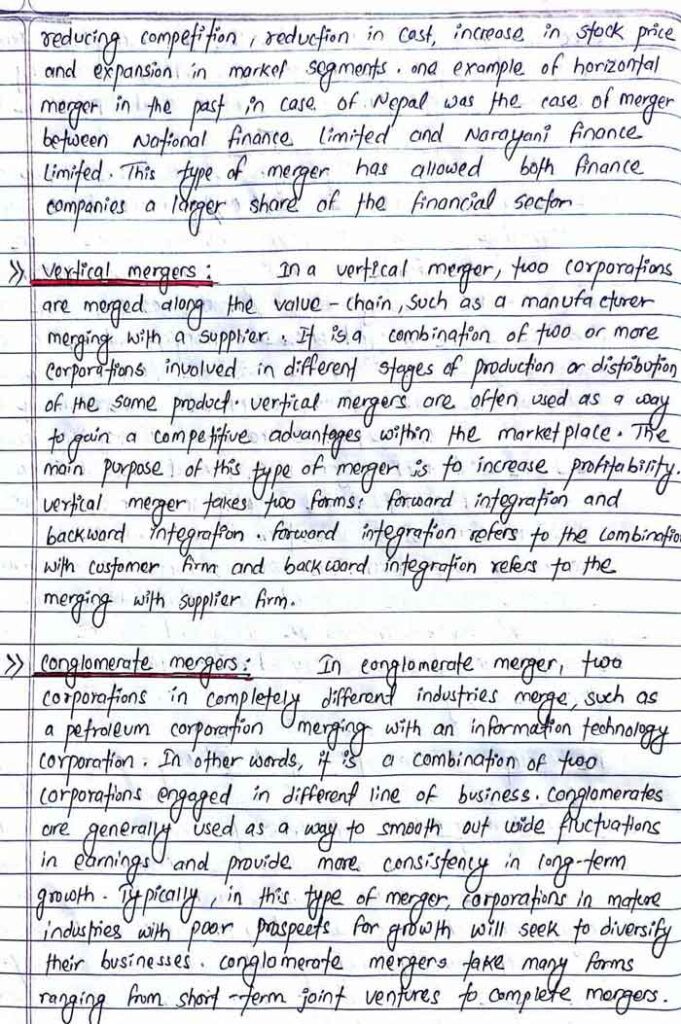 reducing competition, reduction in cost, increase in stock price
and expansion in market segments. one example of horizontal
merger in the past in case of Nepal was the case of merger
between National finance limited and Narayani finance
limited. This type of merger has allowed both finance
companies a larger share of the financial sector
>> vertical mergers: In a vertical merger, two corporations
are merged along the value-chain, such as a manufacturer
merging with a supplier. It is a combination of two or more
corporations involved in different stages of production or distribution
of the same product. vertical mergers are often used as a way
to gain a competitive advantages within the marketplace. The
main purpose of this type of merger is to increase profitability.
vertical merger takes two forms: forward integration and
backword integration. forword integration refers to the combinatio
with customer firm and backword integration refers to the
merging with supplier firm.
>> conglomerate mergers: In conglomerate merger, two
corporations in completely different industries merge, such as
a petroleum corporation merging with an information technology
corporation. In other words, it is a combination of two
corporations engaged in different line of business. conglomerates
are generally used as a way to smooth out wide fluctuations
in earnings and provide more consistency in long-term
growth. Typically, in this type of merger, corporations in mature
industries with poor prospects for growth will seek to diversify
their businesses. conglomerate mergers take many forms
ranging from short-term joint ventures to complete mergers.